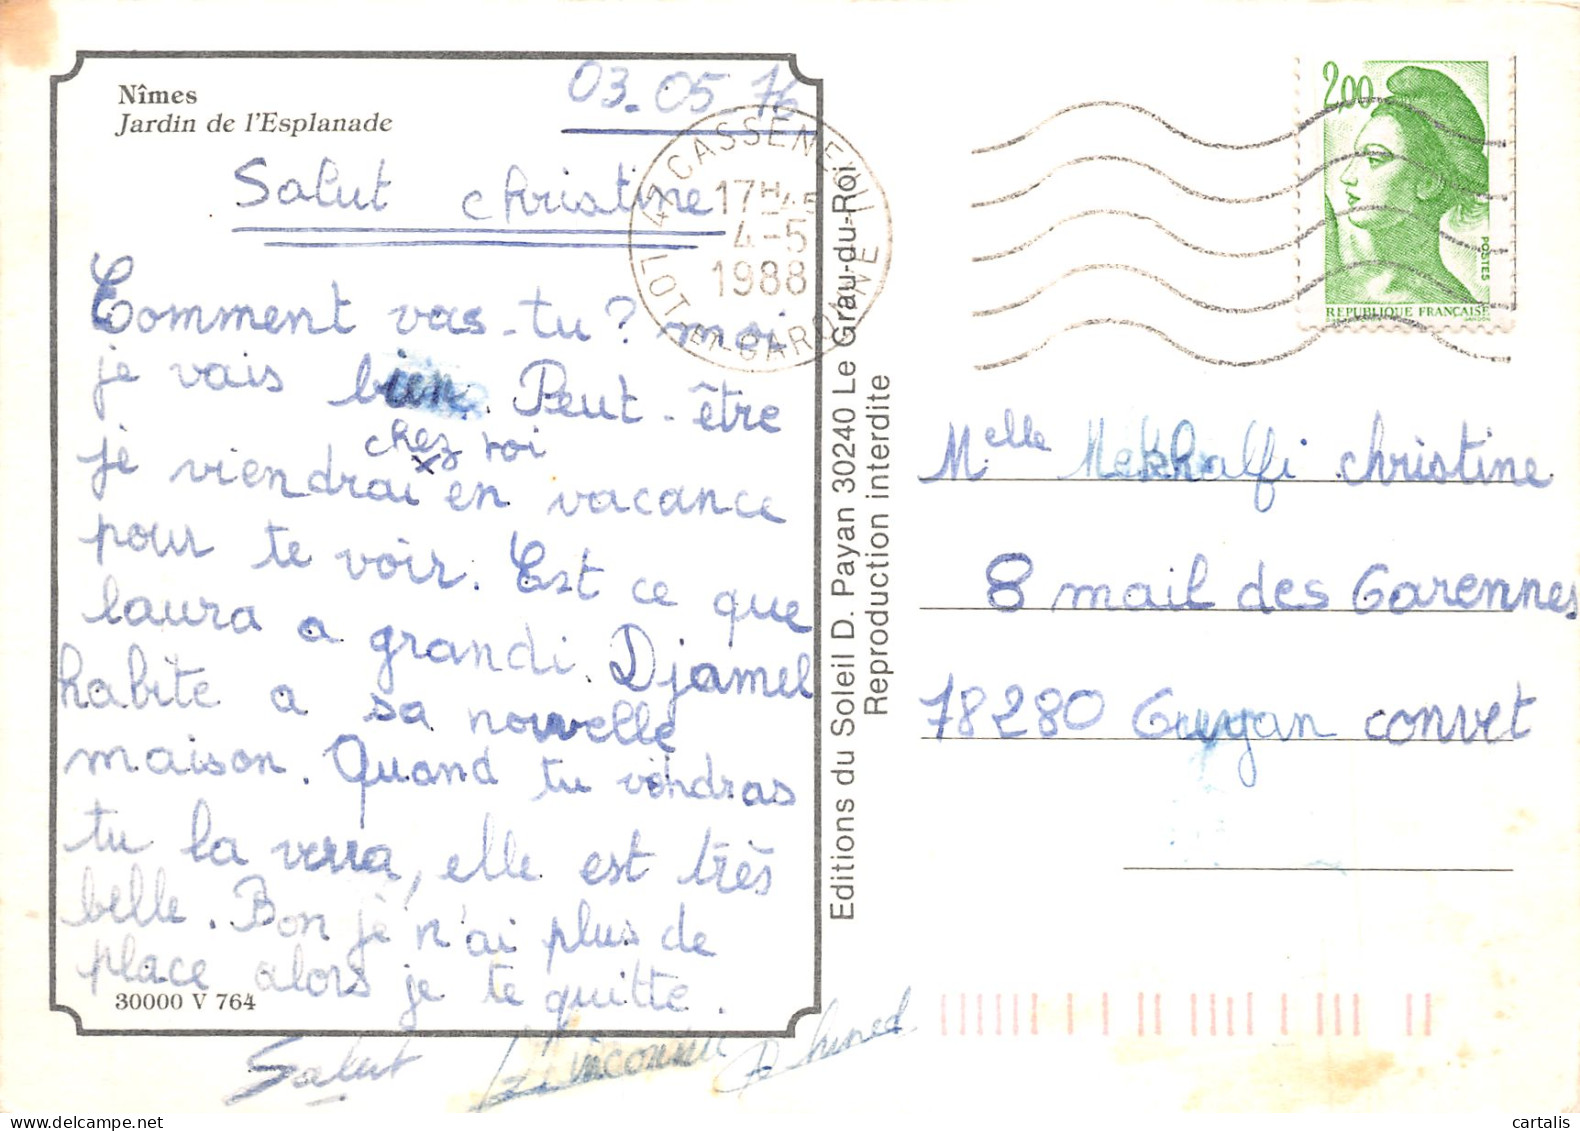 Nîmes
Jardin de l'Esplanade
03-05-76
Salut christine
Comment vas-tu? moi
je vais bien. Peut-être
chez toi
je viendrai en vacance
pour te voir. Est ce que
laura a grandi. Djamel
habite a sa nouvelle
maison. Quand tu voudras
tu la verra, elle est très
belle. Bon je n'ai plus de
place alors je te quitte.
30000 V 764
Salut L'inconnu
47 CASSENEUIL
17H45
4-5
1988
LOT ET GARONNE
Editions du Soleil D. Payan 30240 Le Grau-du-Roi
Reproduction interdite
2,00
POSTES
REPUBLIQUE FRANÇAISE
GANDON
Melle Mekhalfi christine
8 mail des Garennes
78280 Guyan convet
cartalis